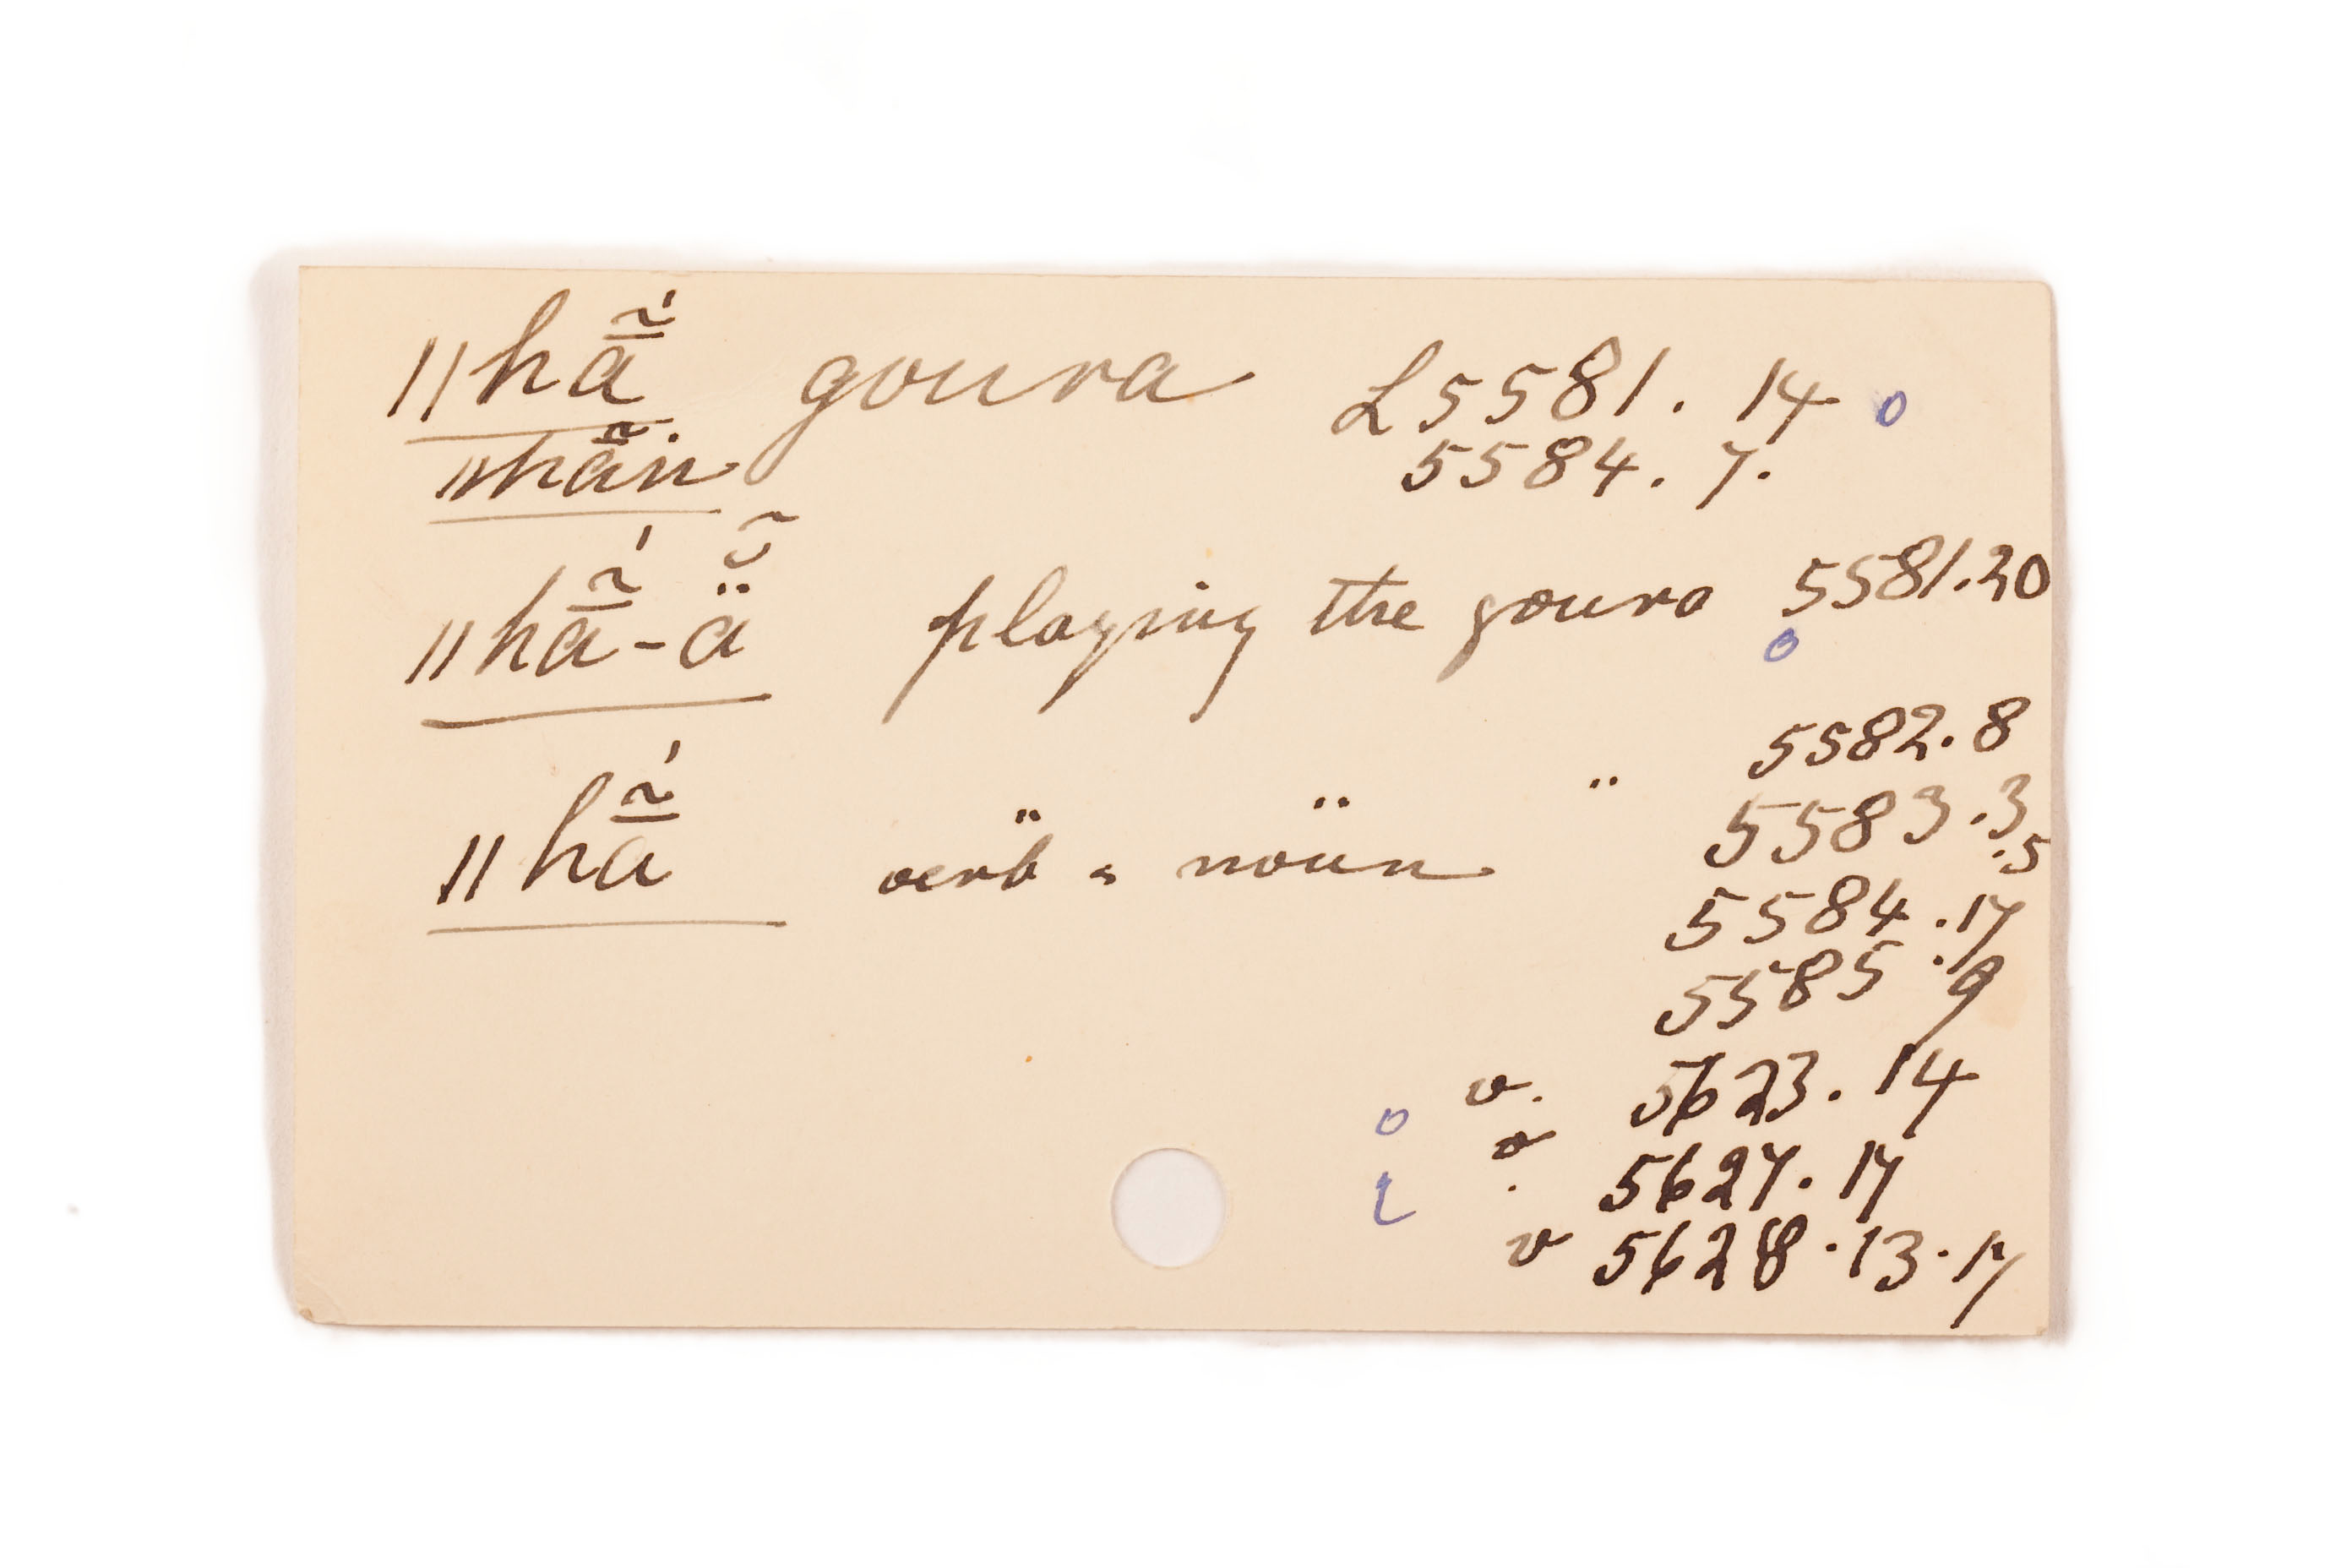 ǁhā̰́ goura L5581. 14 o
ǁhā̰n 5584. 7.
ǁhā̰́-ä̰̆ playing the goura 5581.20
o
" " " 5582.8
ǁhā̰́ verb & noun 5583.3
.5
5584.17
5585.9
o v. 5623.14
v. 5627.17
v 5628.13.17